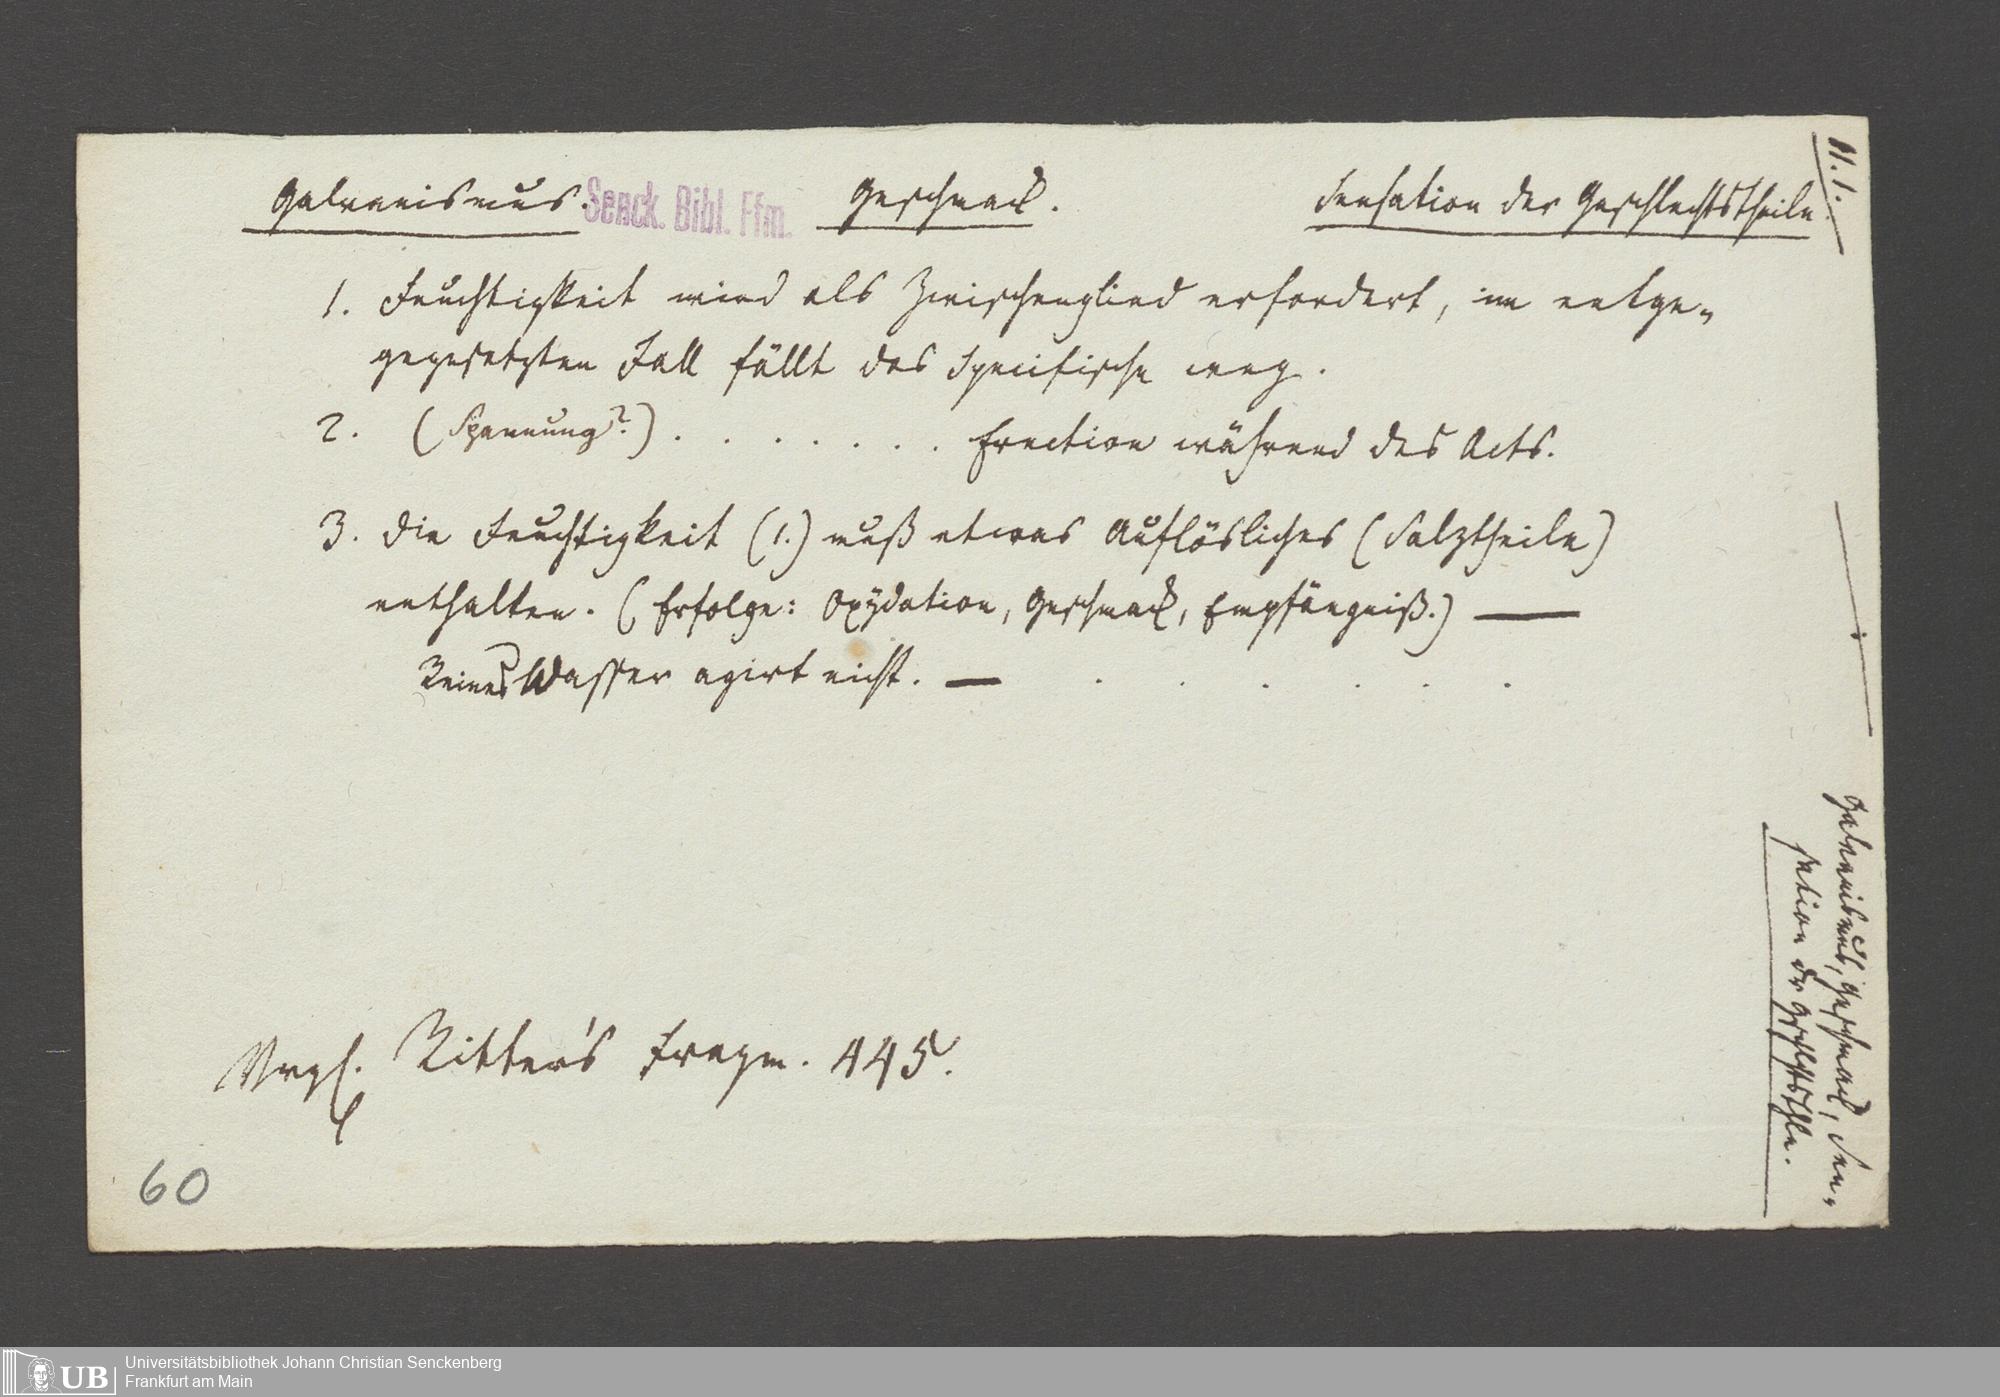 II. 1.
Galvanismus. Geschmack. Sensation der Geschlechtstheile.
Senck. Bibl. Ffm.
1. Feuchtigkeit wird als Zwischenglied erfordert, im entge-
gegesetzten Fall fällt das Specifische weg.
2. (Spannung?) . . . . . . . Erection während des Acts.
3. Die Feuchtigkeit (1.) muß etwas Auflösliches (Salztheile)
enthalten. (Erfolge: Oxydation, Geschmack, Empfängniß.) —
Reines Wasser agirt nicht. — . . . . . .
Vergl. Ritter's Fragm. 445.
60
Galvanismus, Geschmack, Sen-
sation der Geschlechtsthle.
Universitätsbibliothek Johann Christian Senckenberg
Frankfurt am Main
UB